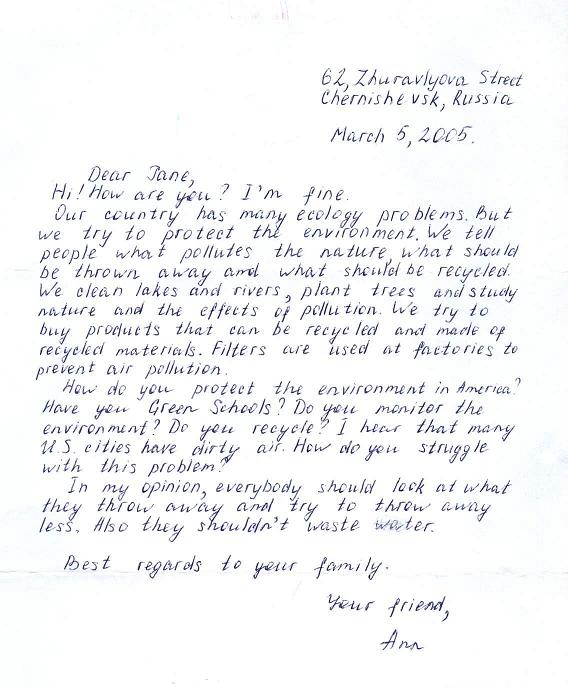 62, Zhuravlyova Street
Chernishevsk, Russia
March 5, 2005.
Dear Jane,
Hi! How are you? I'm fine.
Our country has many ecology problems. But
we try to protect the environment. We tell
people what pollutes the nature, what should
be thrown away and what should be recycled.
We clean lakes and rivers, plant trees and study
nature and the effects of pollution. We try to
buy products that can be recycled and made of
recycled materials. Filters are used at factories to
prevent air pollution.
How do you protect the environment in America?
Have you Green Schools? Do you monitor the
environment? Do you recycle? I hear that many
U.S. cities have dirty air. How do you struggle
with this problem?
In my opinion, everybody should look at what
they throw away and try to throw away
less. Also they shouldn't waste water.
Best regards to your family.
Your friend,
Ann